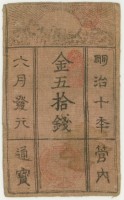 明治十年 管内
金五拾錢
六月發行 通寳